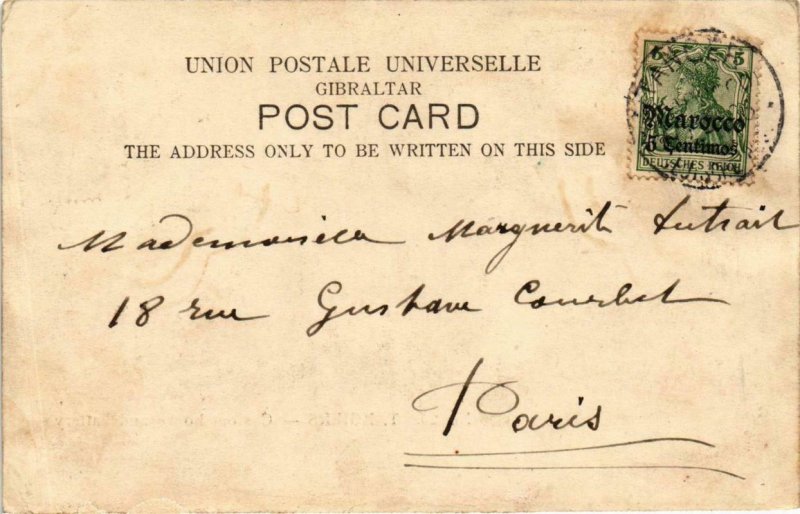 UNION POSTALE UNIVERSELLE
GIBRALTAR
POST CARD
THE ADDRESS ONLY TO BE WRITTEN ON THIS SIDE
5 5
Marocco
5 Centimos
DEUTSCHES REICH
TANGER
Mademoisela Marguerit
18 rue Gustave Courbet
Paris